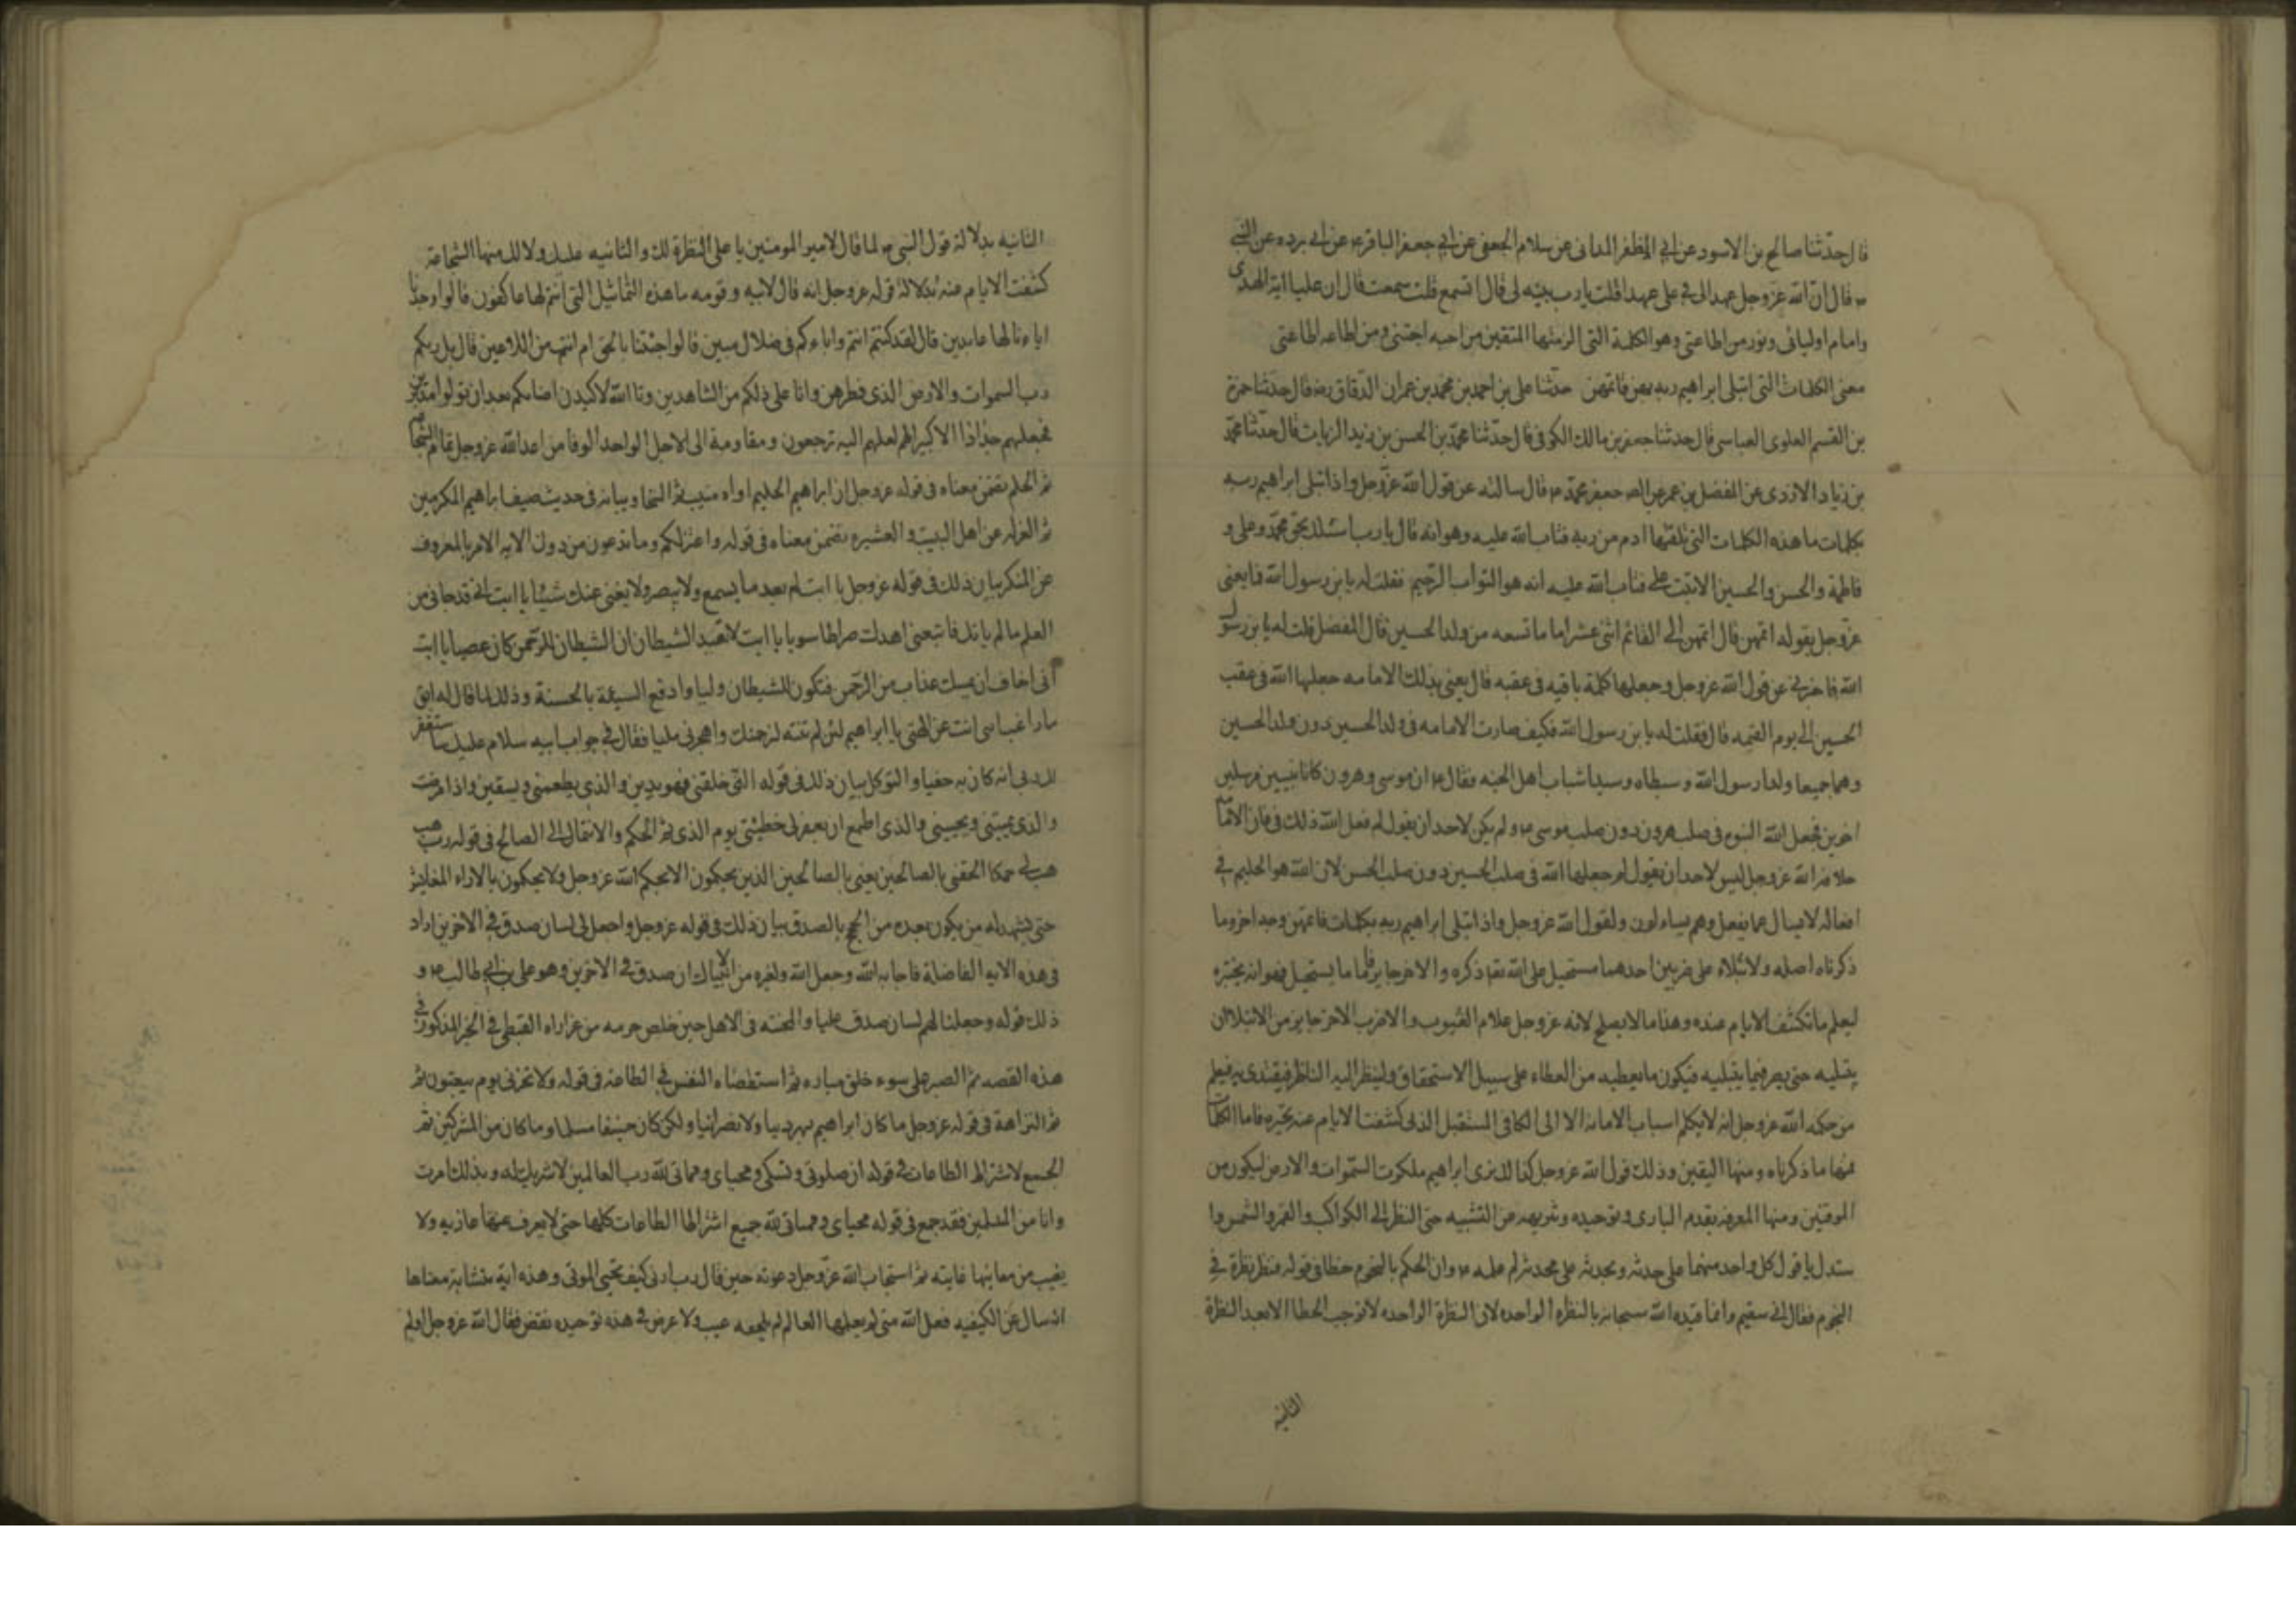 قال حدثنا صالح بن الاسود عن ابي المظفر المدانى عن سلام الجعفى عن ابي جعفر الباقر ع عن ابى برده عن النبى
ص قال ان الله عز وجل عهد الى فى على عهدا قلت يا رب بينه لى قال اسمع قلت سمعت قال ان عليا اية الهدى
وامام اوليائى ونور من اطاعنى وهو الكلمة التى الزمتها المتقين من احبه احبنى ومن اطاعه اطاعنى
معنى الكلمات التى ابتلى ابراهيم ربه بهن فاتمهن حدثنا على بن احمد بن محمد بن عمران الدقاق رضه قال حدثنا حمزة
بن القسم العلوى العباسى قال حدثنا جعفر بن مالك الكوفى قال حدثنا محمد بن الحسن بن زيد الزيات قال حدثنا محمد
بن زياد الازدى عن المفضل بن عمر عن الصـ جعفر بن محمد ع قال سالته عن قول الله عز وجل واذ ابتلى ابراهيم ربه
بكلمات ما هذه الكلمات التى تلقيها ادم من ربه فتاب الله عليه وهو انه قال يا رب اسئلك بحق محمد وعلى و
فاطمة والحسن والحسين الا تبت على فتاب الله عليه انه هو التواب الرحيم فقلت له يا بن رسول الله فما يعنى
عز وجل بقوله اتمهن قال اتمهن الى القائم اثنى عشر اماما تسعه من ولد الحسين قال المفضل فقلت له يا بن رسول
الله فاخبرنى عن قول الله عز وجل وجعلها كلمة باقيه فى عقبه قال يعنى بذلك الامامه جعلها الله فى عقب
الحسين الى يوم القيمه قال فقلت له يا بن رسول الله فكيف صارت الامامه فى ولد الحسين دون ولد الحسين
وهما جميعا ولدا رسول الله وسبطاه وسيدا شباب اهل الجنه فقال ع ان موسى وهرون كانا نبيين مرسلين
اخوين فجعل الله النبوه فى صلب هرون دون صلب موسى ع ولم يكن لاحد ان يقول لم فعل الله ذلك فان الامامه
خلافة الله عز وجل ليس لاحد ان يقول لم جعلها الله فى صلب الحسين دون صلب الحسن لان الله هو الحكيم فى
افعاله لا يسال عما يفعل وهم يساءلون ولقول الله عز وجل واذ ابتلى ابراهيم ربه بكلمات فاتمهن وجه اخر وما
ذكرناه اصله والابتلاء على ضربين احدهما مستحيل على الله تعـ ذكره والاخر جايز فاما ما يستحيل فهو ان يختبره
ليعلم ما تكشف الايام عنه وهذا ما لا يصلح لانه عز وجل علام الغيوب والضرب الاخر جايز من الابتلا ان
يبتليه حتى يصبر فيما يبتليه فيكون ما يعطيه من العطاء على سبيل الاستحقاق ولينظر اليه الناظر فيقتدى به فيعلم
من حكمه الله عز وجل انه لا يكلم اسباب الامانه الا الى الكافى المستقبل الذى كشفت الايام عنه بخيره فاما الكلمات
فمنها ما ذكرناه ومنها اليقين وذلك قول الله عز وجل كذلك نرى ابراهيم ملكوت السموات والارض ليكون من
الموقنين ومنها المعرفه بقدم البارى وتوحيده وتنزيهه عن التشبيه حتى النظر الى الكواكب والقمر والشمس وا
ستدل بافول كل واحد منهما على حدثه وبحدثه على محدثه ثم علمه ع وان الحكم بالنجوم خطا فى قوله فنظر نظرة فى
النجوم فقال انى سقيم وانما قيده الله سبحانه بالنظره الواحده لان النظرة الواحده لا توجب الخطا الا بعد النظرة
الثانيه
الثانيه بدلالة قول النبى ص لما قال لامير المومنين يا على النظرة لك والثانيه عليك ولا لك منها الشجاعة
كشفت الايام عنه بدلالة قوله عز وجل انه قال لابيه وقومه ما هذه التماثيل التى انتم لها عاكفون قالوا وجدنا
اباءنا لها عابدين قال لقد كنتم انتم واباءكم فى ضلال مبين قالوا اجئتنا بالحق ام انت من اللاعبين قال بل ربكم
رب السموات والارض الذى فطرهن وانا على ذلكم من الشاهدين وتا الله لاكيدن اصنامكم بعد ان تولوا مدبرين
فجعلهم جذاذا الا كبيرا لهم لعلهم اليه ترجعون ومقاومة الى الاجل الواحد الوفا من اعدا الله عز وجل تمام الشجاعه
ثم الحلم تضمن معناه فى قوله عز وجل ان ابراهيم لحليم اواه منيب ثم السخا وبيانه فى حديث ضيف ابراهيم المكرمين
ثم العزله عن اهل البيت و العشيره تضمن معناه فى قوله واعتزلكم وما تدعون من دون الله الايه الامر بالمعروف
عن المنكر بيان ذلك فى قوله عز وجل يا ابت لم تعبد ما يسمع ولا يبصر ولا يغنى عنك شيئا يا ابت انى قد جانى من
العلم ما لم ياتك فاتبعنى اهدك صراطا سويا يا ابت لا تعبد الشيطان ان الشيطان للرحمن كان عصيا يا ابت
انى اخاف ان يمسك عذاب من الرحمن فتكون للشيطان وليا وادفع السيئة بالحسنة وذلك لما قال له ابوه
اراغب انت عن الهتى يا ابراهيم لئن لم تنته لارجمنك واهجرنى مليا فقال فى جواب ابيه سلام عليك ساستغفر
لك ربى انه كان بى حفيا والتوكل بيان ذلك فى قوله التى خلقنى فهو يهدين والذى يطعمنى ويسقين واذا مرضت
والذى يميتنى ويحيينى والذى اطمع ان يغفر لى خطيئتى يوم الذى ثم الحكم والانتمال الى الصالح فى قوله رب هب
هب لى حكما الحقنى بالصالحين يعنى بالصالحين الذين يحكمون الا بحكم الله عز وجل ولا يحكمون بالاراء المقايس
حتى يشهد له من يكون بعده من الحجج بالصدق بيان ذلك فى قوله عز وجل واجعل لى لسان صدق فى الاخرين اراد
فى هذه الايه الفاضلة فاجابه الله وجعل الله ولغيره من الانبياء لسان صدق فى الاخرين وهو على بن ابى طالب ع و
ذلك قوله وجعلنا لهم لسان صدق عليا والمحنه فى الاهل حين خلص حرمه من عزاراه القبطى فى الخبر المذكور فى
هذه القصه ثم الصبر على سوء خلق ساره ثم استقصاء النفس فى الطاعه فى قوله ولا تخزنى يوم يبعثون ثم
ثم النزاهة فى قوله عز وجل ما كان ابراهيم يهوديا ولا نصرانيا ولكن كان حنيفا مسلما وما كان من المشركين ثم
الجمع لاشراط الطاعات فى قوله ان صلوتى ونسكى ومحياى ومماتى لله رب العالمين لا شريك له وبذلك امرت
وانا من المسلمين فقد جمع فى قوله محياى ومماتى لله جميع اشراط الطاعات كلها حتى لا يعرف عنها عازبه ولا
يغيب من معانيها غايبه ثم استجاب الله عز وجل دعوته حين قال رب ارنى كيف تحيى الموتى وهذه ايه متشابهة معناها
انه سال عن الكيفيه فعل الله متى لم يعلمها العالم لم يلحقه عيب ولا عرض فى هذه توحيده نقض فقال الله عز وجل اولم